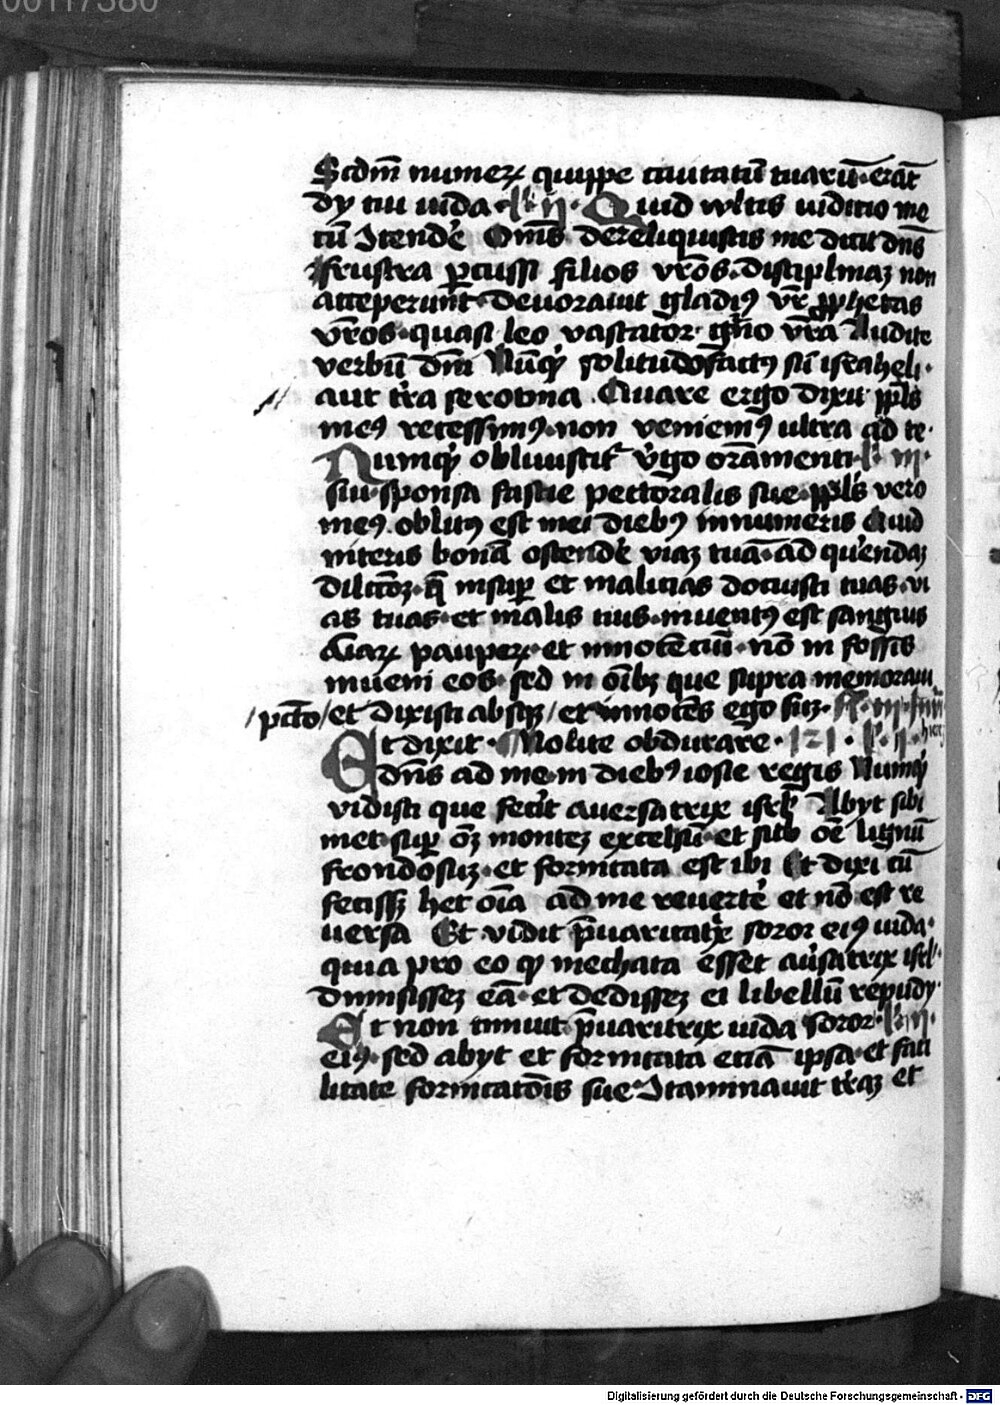 00117380
Scdm̄ numeꝝ quippe ciuitatū tuarū·erāt
dy tui iuda· l̄c ij· Quid vltis iudicio me
cū Ↄtendēˀ Om̄s dereliquistis me dicit dn̄s
frustra ꝑcussi filios vr̄os·disciplinaꝫ non
acceperunt·deuorauit gladiꝰ vr̄ ꝓphetas
vr̄os·quasi leo vastator· gn̄ro vr̄a Audite
verbū dn̄i Nūqͥd solitudo factꝰ sū israheli·
aut tr̄a serotina ·Quare ergo dixit ppl̄s
meꝰ recessimꝰ·non veniemꝰ ultra ad te·
Numqͥd obliuiscitˀ v̓go ornāmenti· l̄c iij·
sui·sponsa fascie pectoralis sue·ppl̄s vero
meꝰ·oblitꝰ est mei diebꝰ innumeris Quid
niteris bonā ostendēˀ viaꝫ tuā·ad querendaꝫ
dilcc̄oꝫ·q̄ insuꝑ et malicias docuisti tuas·vi
as tuas·et malis tuis·inuentꝰ est sanguis
aīaꝝ pauperꝝ·et innocēciū·nō in fossis
inueni eos·sed in oīb; que supra memoraui
/pctō/ et dixisti absqꝫ / et innocēs ego suꝫ·
Et dixit · Nolite obdurare · l̄c ij·
dn̄s ad me·in diebꝰ iosie regis Numqͥd
vidisti que fecit auersatrix isrl̄ Abyt sibi
met·suꝑ oēꝫ monteꝫ excelsū·et sub oē lignū
frondosuꝫ·et fornicata est ibi Et dixi cū
fecissꝫ hec oīa ad me reuertēˀ et nō est re
uersa Et vidit p̄uaricatͥx soror eiꝰ iuda·
quia pro eo qꝫ mechata esset au̓satrix isrl̄·
dimisisseꝫ eā·et dedisseꝫ ei libellū repudy·
Et non timuit p̄uaricatrix iuda soror· l̄c iij·
eiꝰ·sed abyt et fornicata eciā ipsa·et faci
litate fornicatōis sue Ↄtaminauit tr̄aꝫ et
Digitalisierung gefördert durch die Deutsche Forschungsgemeinschaft · DFG